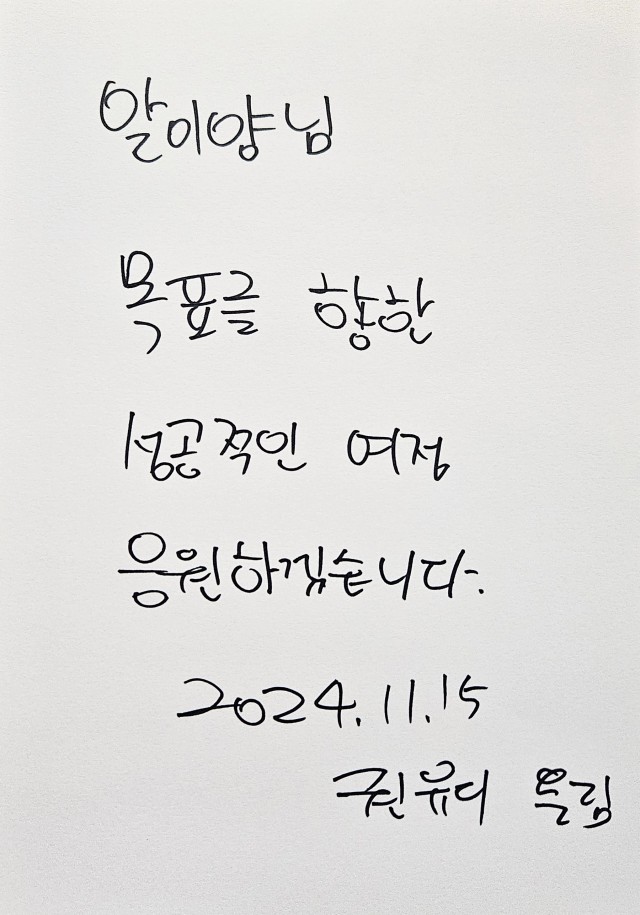 알이양님
목표를 향한
성공적인 여정
응원하겠습니다.
2024.11.15
권유디 드림